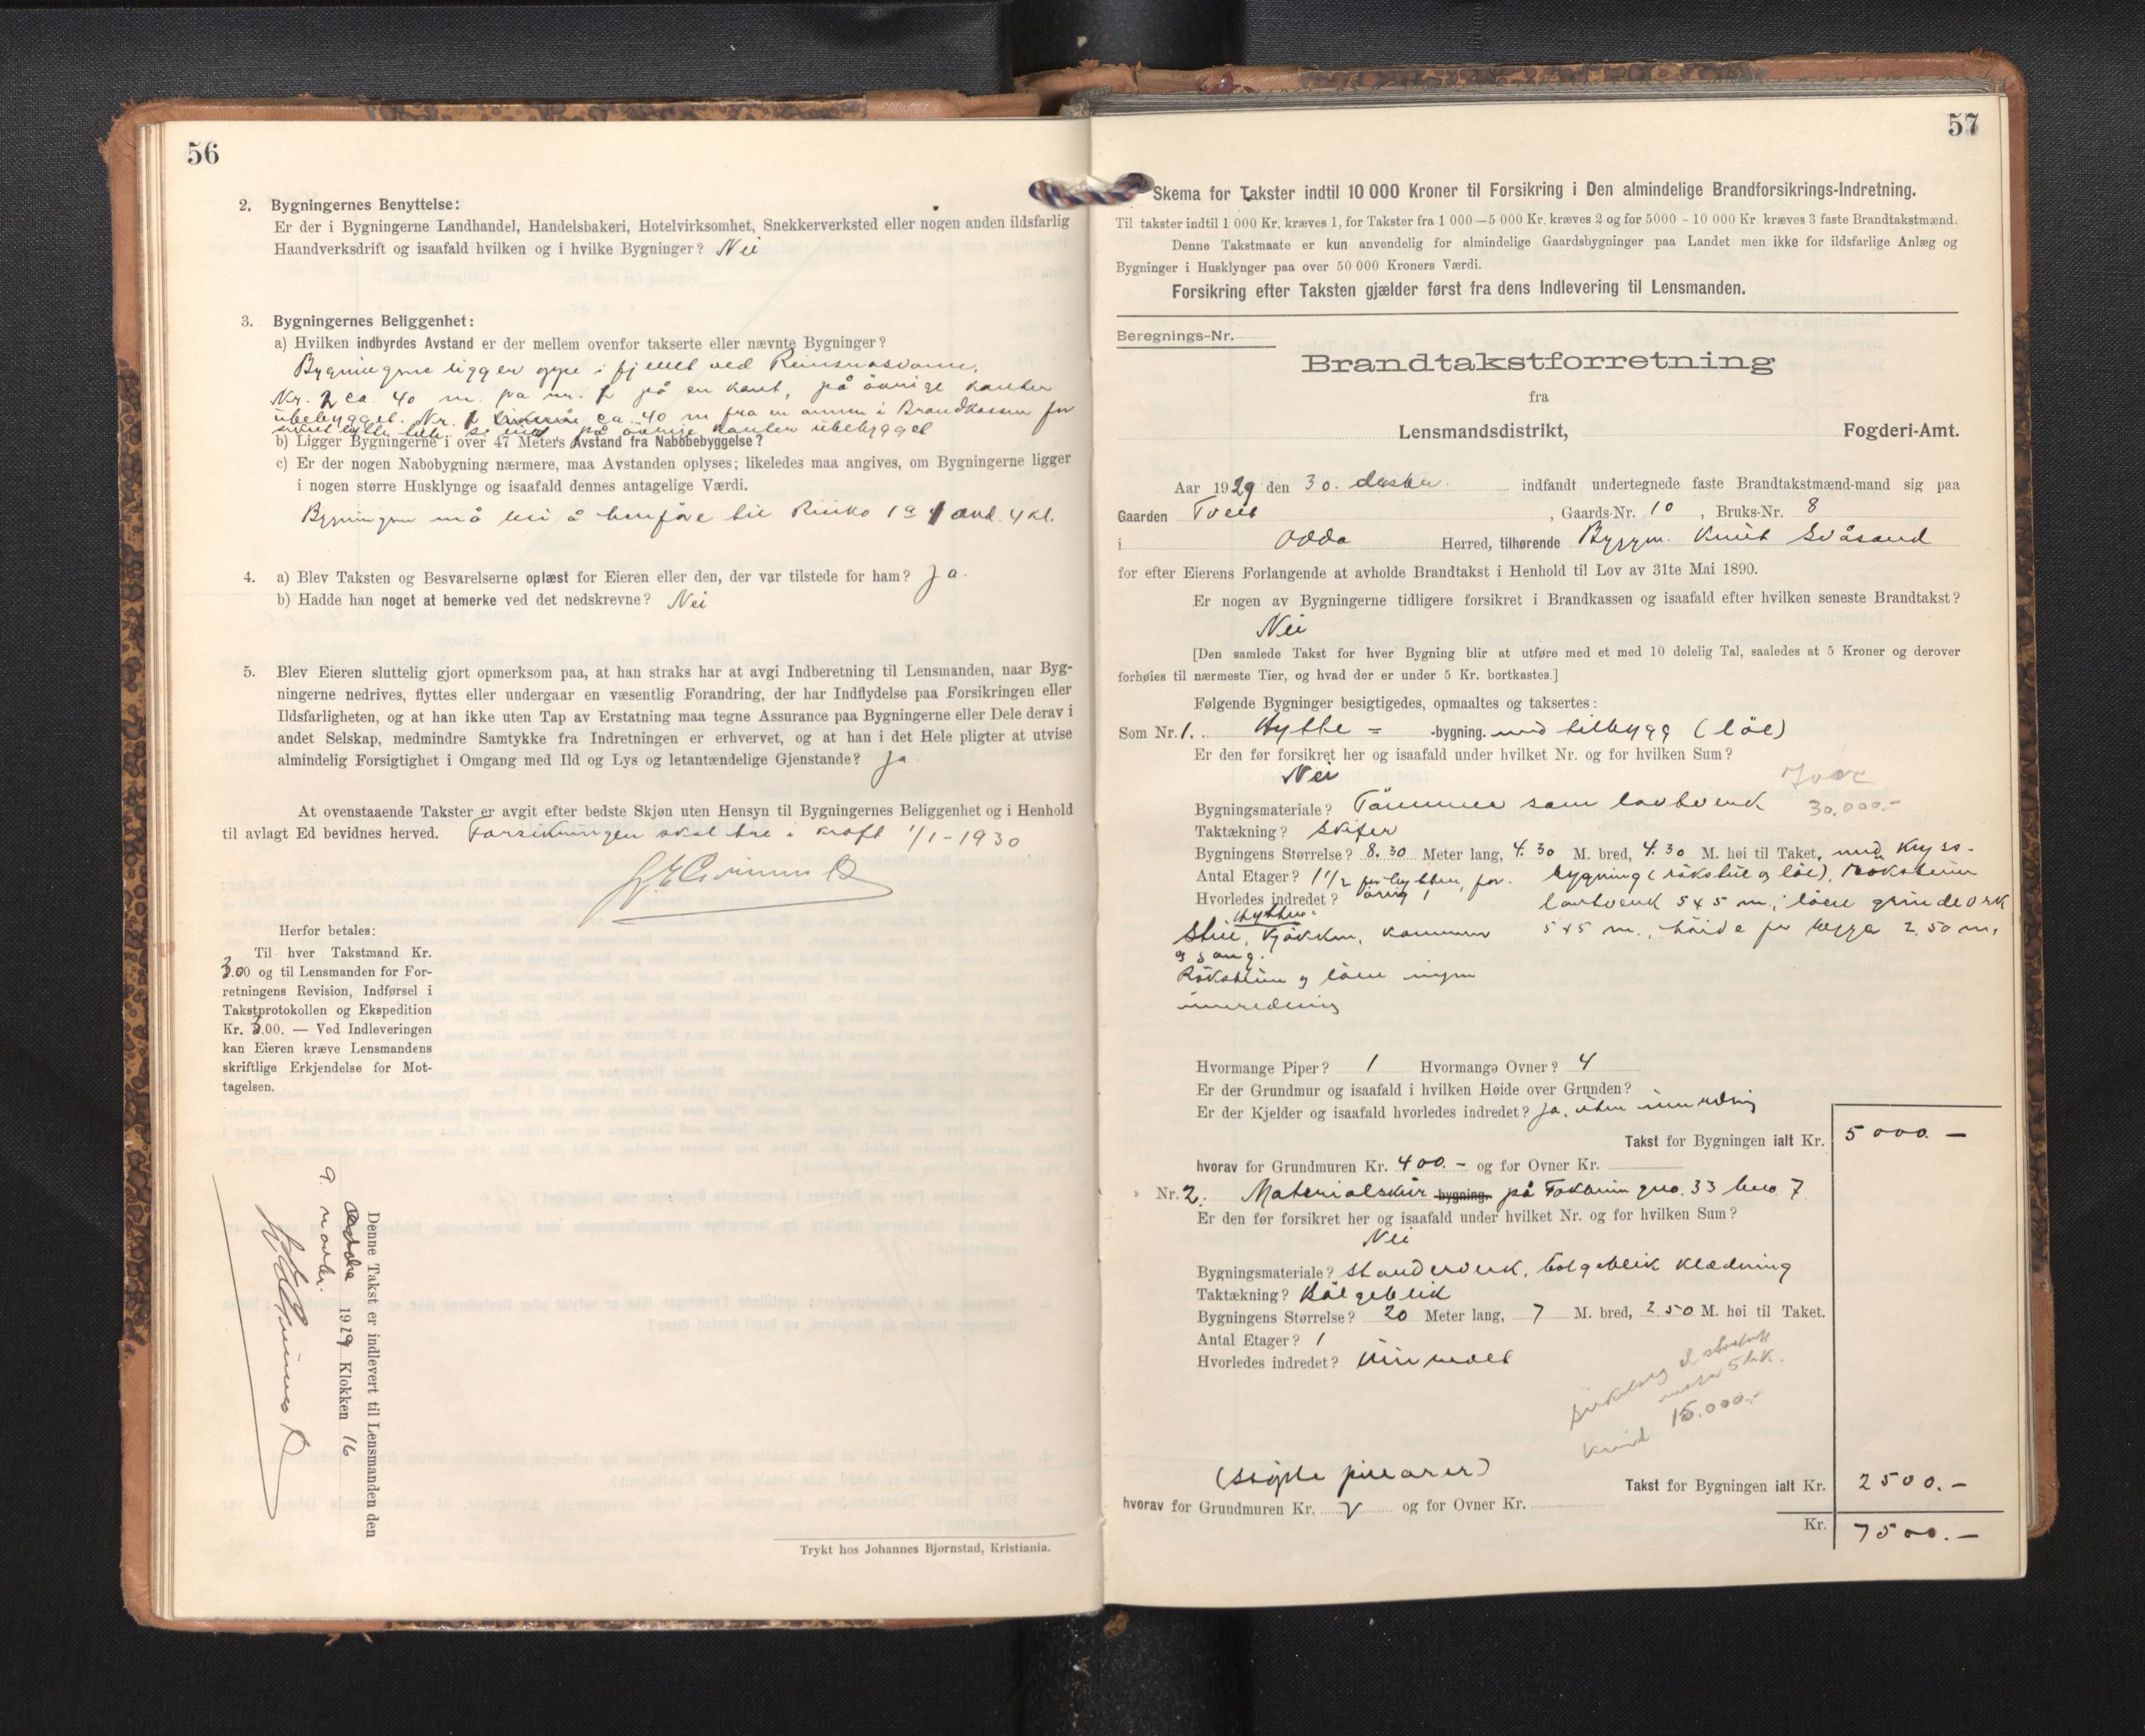 56
2. Bygningernes Benyttelse:
Er der i Bygningerne Landhandel, Handelsbakeri, Hotelvirksomhet, Snekkerverksted eller nogen anden ildsfarlig
Haandverksdrift og isaafald hvilken og i hvilke Bygninger? Nei
3. Bygningernes Beliggenhet:
a) Hvilken indbyrdes Avstand er der mellem ovenfor takserte eller nævnte Bygninger?
Bygningene ligger oppe i fjellet ved Reinsnosvann.
Nr. 2 ca. 40 m. fra nr. 1 på en kant, på øvrige kanter
ubebygget. Nr. 1 ca. 40 m fra en annen i Brandkassen for
sikret hytte på øvrige kanter ubebygget
b) Ligger Bygningerne i over 47 Meters Avstand fra Nabobebyggelse?
c) Er der nogen Nabobygning nærmere, maa Avstanden oplyses; likeledes maa angives, om Bygningerne ligger
i nogen større Husklynge og isaafald dennes antagelige Værdi.
Bygningen må bli å henføre til Risiko 1a 1 avd. 4 kl.
4. a) Blev Taksten og Besvarelserne oplæst for Eieren eller den, der var tilstede for ham? Ja.
b) Hadde han noget at bemerke ved det nedskrevne? Nei
5. Blev Eieren sluttelig gjort opmerksom paa, at han straks har at avgi Indberetning til Lensmanden, naar Byg-
ningerne nedrives, flyttes eller undergaar en væsentlig Forandring, der har Indflydelse paa Forsikringen eller
Ildsfarligheten, og at han ikke uten Tap av Erstatning maa tegne Assurance paa Bygningerne eller Dele derav i
andet Selskap, medmindre Samtykke fra Indretningen er erhvervet, og at han i det Hele pligter at utvise
almindelig Forsigtighet i Omgang med Ild og Lys og letantændelige Gjenstande? Ja
At ovenstaaende Takster er avgit efter bedste Skjøn uten Hensyn til Bygningernes Beliggenhet og i Henhold
til avlagt Ed bevidnes herved. Forsikringen skal tre i kraft 1/1-1930
Herfor betales:
Til hver Takstmand Kr.
3.00 og til Lensmanden for For-
retningens Revision, Indførsel i
Takstprotokollen og Ekspedition
Kr. 3.00. — Ved Indleveringen
kan Eieren kræve Lensmandens
skriftlige Erkjendelse for Mot-
tagelsen.
Denne Takst er indlevert til Lensmanden den
9. novbr. 1929 Klokken 16
Trykt hos Johannes Bjørnstad, Kristiania.
57
Skema for Takster indtil 10 000 Kroner til Forsikring i Den almindelige Brandforsikrings-Indretning.
Til takster indtil 1 000 Kr. kræves 1, for Takster fra 1 000 — 5 000 Kr. kræves 2 og for 5000 - 10 000 Kr. kræves 3 faste Brandtakstmænd.
Denne Takstmaate er kun anvendelig for almindelige Gaardsbygninger paa Landet men ikke for ildsfarlige Anlæg og
Bygninger i Husklynger paa over 50 000 Kroners Værdi.
Forsikring efter Taksten gjælder først fra dens Indlevering til Lensmanden.
Beregnings-Nr.
Brandtakstforretning
fra
Lensmandsdistrikt, Fogderi-Amt.
Aar 1929 den 30. indfandt undertegnede faste Brandtakstmænd-mand sig paa
Gaarden Tveit, Gaards-Nr. 10, Bruks-Nr. 8
i Odda Herred, tilhørende Byggm. Knut Svåsand
for efter Eierens Forlangende at avholde Brandtakst i Henhold til Lov av 31te Mai 1890.
Er nogen av Bygningerne tidligere forsikret i Brandkassen og isaafald efter hvilken seneste Brandtakst?
Nei
[Den samlede Takst for hver Bygning blir at utføre med et med 10 delelig Tal, saaledes at 5 Kroner og derover
forhøies til nærmeste Tier, og hvad der er under 5 Kr. bortkastes.]
Følgende Bygninger besigtigedes, opmaaltes og taksertes:
Som Nr. 1. Hytte = -bygning. med tilbygg (löe)
Er den før forsikret her og isaafald under hvilket Nr. og for hvilken Sum?
Nei
30.000.-
Bygningsmateriale? Tömmer som lavtverk
Taktækning? Skifer
Bygningens Størrelse? 8.30 Meter lang, 4.30 M. bred, 4.30 M. høi til Taket. med kryss-
Antal Etager? 1 1/2 for hytten, for bygning (røkstue og löe), Rökstuen
øvrig 1
Hvorledes indredet? lavtverk 5x5 m., löen grindverk
Hytten:
Stue, kjökken, kammer 5x5 m., höide for begge 2.50 m.
og gang.
Rökstuen og löen ingen
innredning
Hvormange Piper? 1 Hvormange Ovner? 4
Er der Grundmur og isaafald i hvilken Høide over Grunden?
Er der Kjelder og isaafald hvorledes indredet? Ja, uten innredning
Takst for Bygningen ialt Kr. 5000.—
hvorav for Grundmuren Kr. 400.- og for Ovner Kr.
» Nr. 2. Materialskur bygning. på Tokheim gno. 33 bno. 7
Er den før forsikret her og isaafald under hvilket Nr. og for hvilken Sum?
Nei
Bygningsmateriale? Standerverk, bølgeblik klædning
Taktækning? Bölgeblik
Bygningens Størrelse? 20 Meter lang, 7 M. bred, 2.50 M. høi til Taket.
Antal Etager? 1
Hvorledes indredet? Uinredet
15.000.-
(støpte pillarer)
Takst for Bygningen ialt Kr. 2500.—
hvorav for Grundmuren Kr. og for Ovner Kr.
Kr. 7500.—